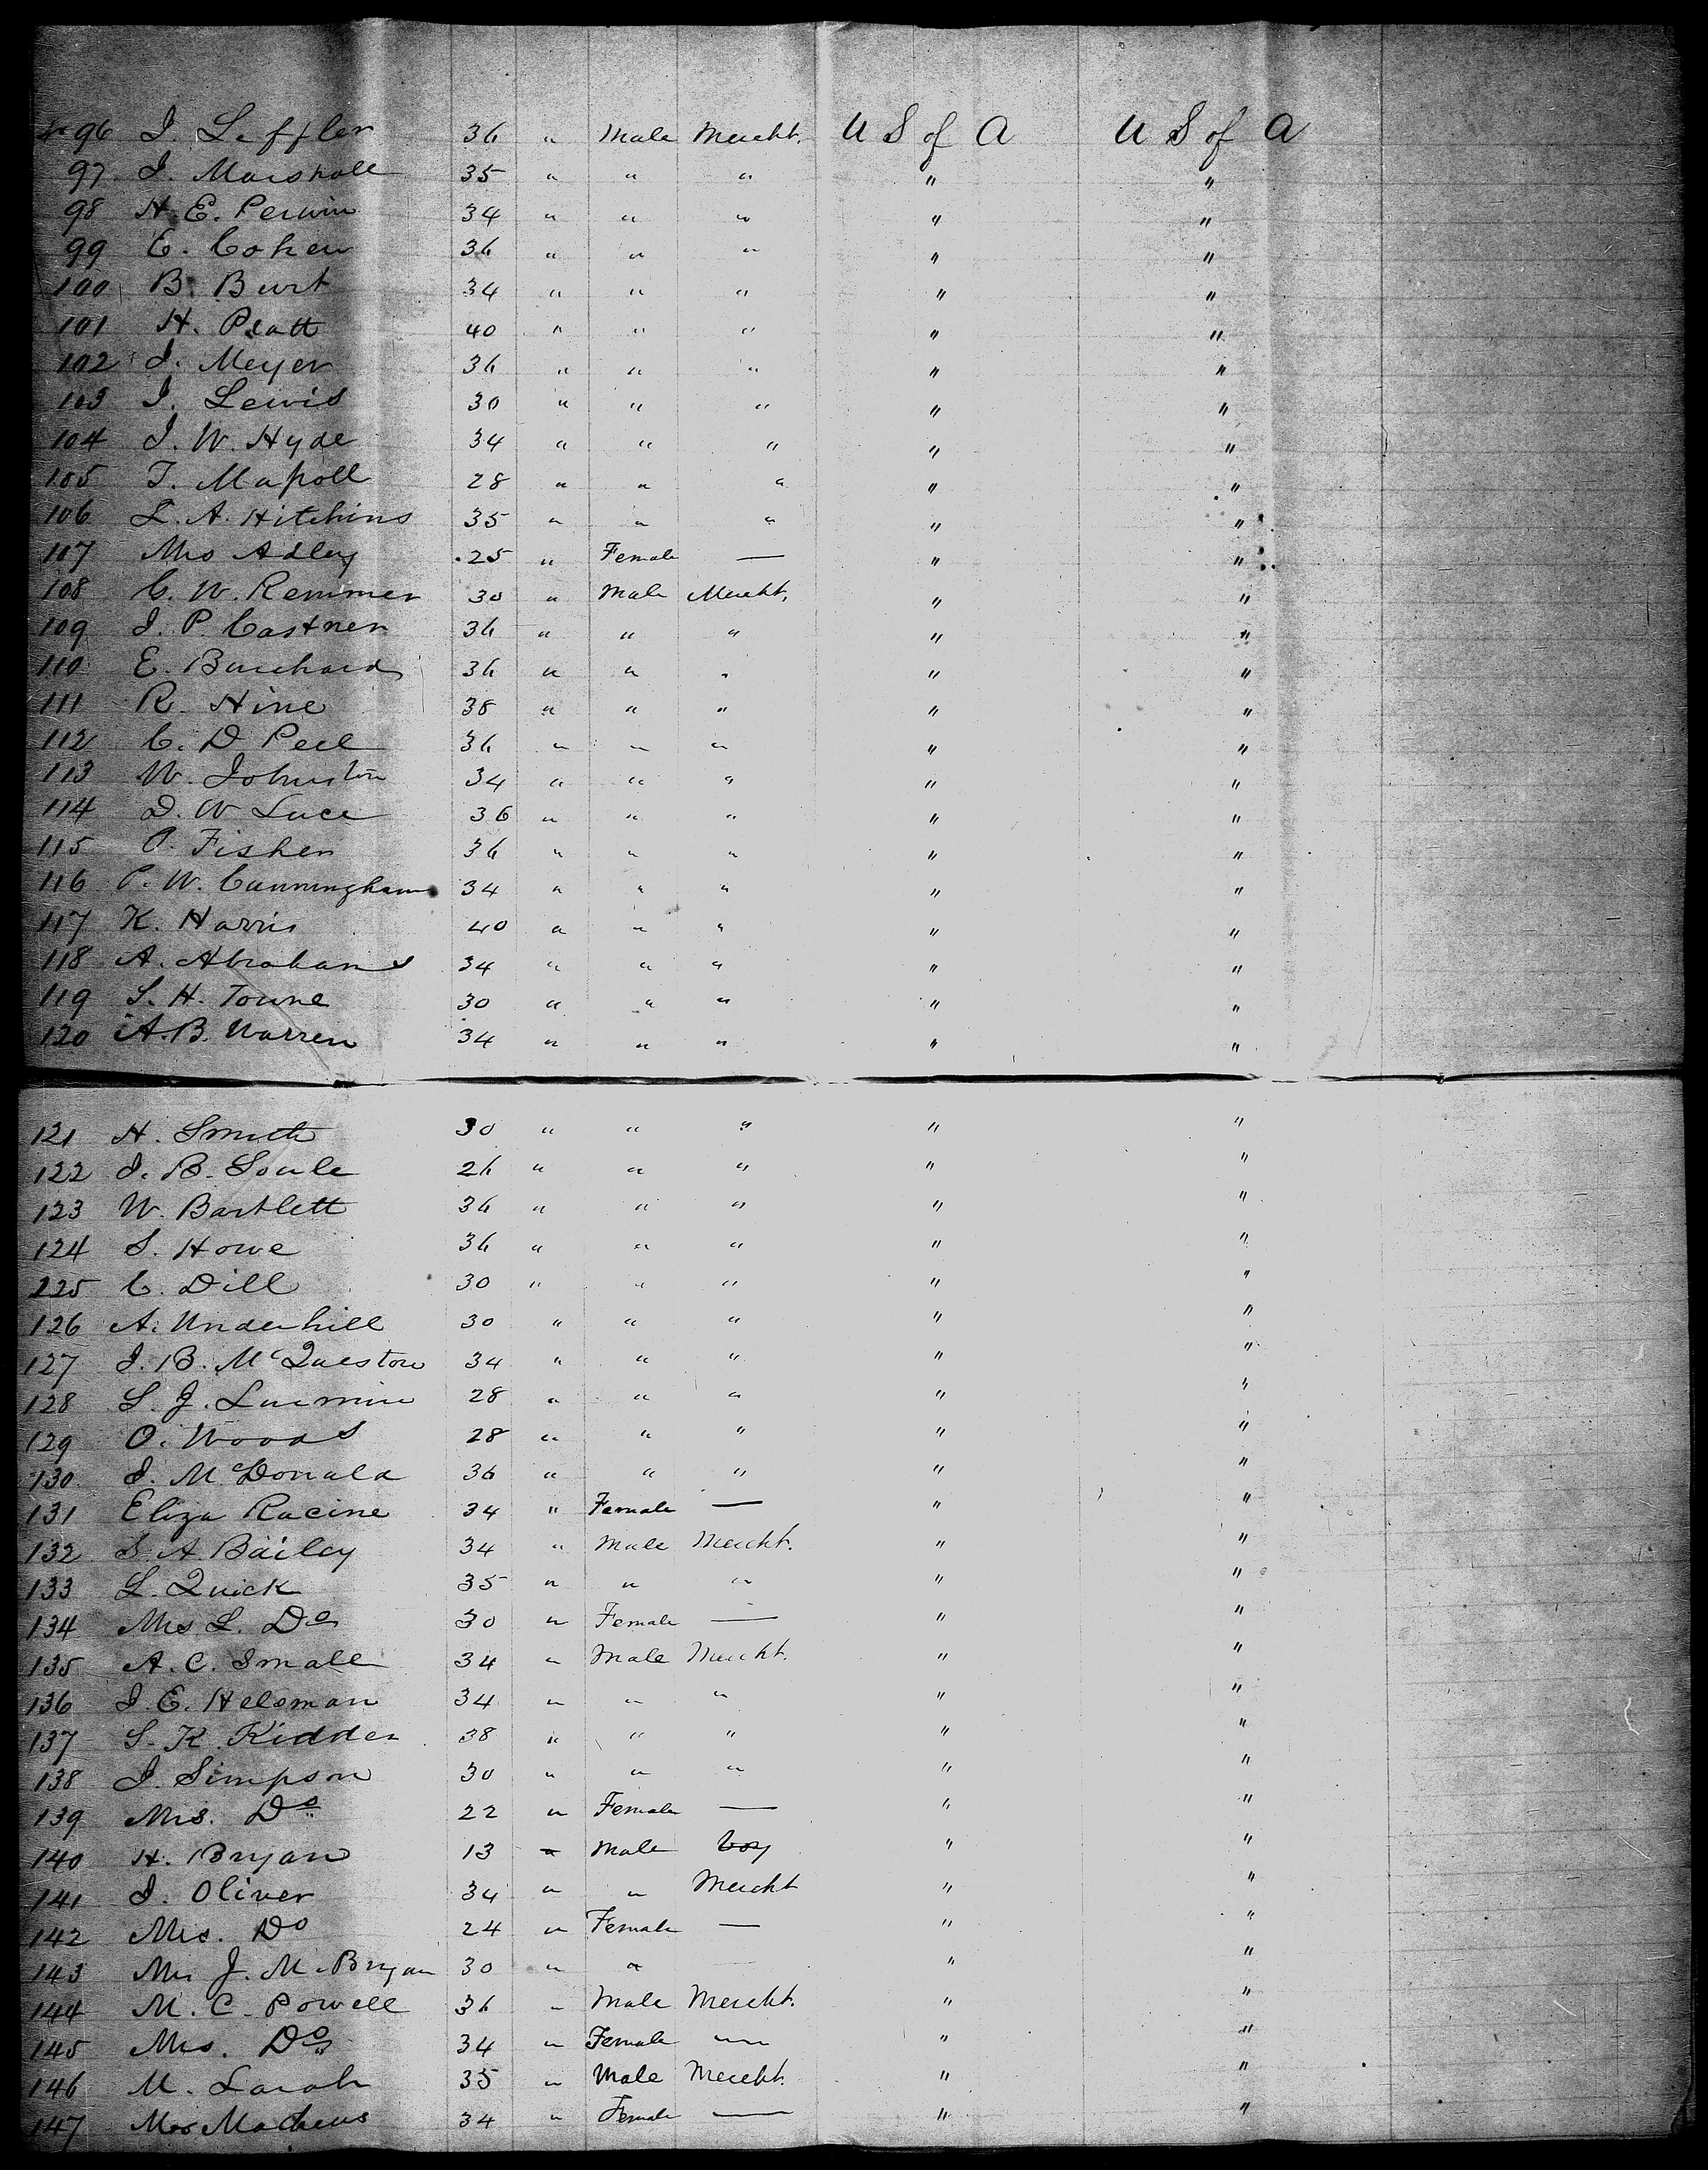 96 I. Leffler 36 " Male Mercht. U S of A U S of A
97 I. Marshall 35 " " " " "
98 H. E. Perwin 34 " " " " "
99 E. Cohen 36 " " " " "
100 B. Burt 34 " " " " "
101 H. Pratt 40 " " " " "
102 I. Meyer 36 " " " " "
103 I. Lewis 30 " " " " "
104 I. W. Hyde 34 " " " " "
105 T. Mapoll 28 " " " " "
106 L. A. Hitchins 35 " " " " "
107 Mrs Adley 25 " Female — " "
108 C. W. Remmer 30 " Male Mercht. " "
109 I. P. Castner 36 " " " " "
110 E. Burchard 36 " " " " "
111 R. Hine 38 " " " " "
112 C. D Peel 36 " " " " "
113 W. Johnston 34 " " " " "
114 D. W Luce 36 " " " " "
115 P. Fisher 36 " " " " "
116 P. W. Cunningham 34 " " " " "
117 K. Harris 40 " " " " "
118 A. Abrahams 34 " " " " "
119 S. H. Towne 30 " " " " "
120 A. B. Warren 34 " " " " "
121 H. Smith 30 " " " " "
122 I. B. Soule 26 " " " " "
123 W. Bartlett 36 " " " " "
124 S. Howe 36 " " " " "
125 C. Dill 30 " " " " "
126 A. Underhill 30 " " " " "
127 I. B. McQueston 34 " " " " "
128 S. J. 28 " " " " "
129 O. Woods 28 " " " " "
130 I. McDonald 36 " " " " "
131 Eliza Racine 34 " Female — " "
132 S. A. Bailey 34 " Male Mercht. " "
133 L. Quick 35 " " " " "
134 Mrs L. Do 30 " Female — " "
135 A. C. Small 34 " Male Mercht. " "
136 I. E. Helsman 34 " " " " "
137 S. K. Kidder 38 " " " " "
138 I. Simpson 30 " " " " "
139 Mrs. Do 22 " Female — " "
140 H. Bryan 13 " Male boy " "
141 I. Oliver 34 " " Mercht " "
142 Mrs. Do 24 " Female — " "
143 Mrs J. M. Bryan 30 " " " "
144 M. C. Powell 36 " Male Mercht. " "
145 Mrs. Do 34 " Female — " "
146 M. Sarah 35 " Male Mercht. " "
147 Mrs Mathews 34 " Female — " "